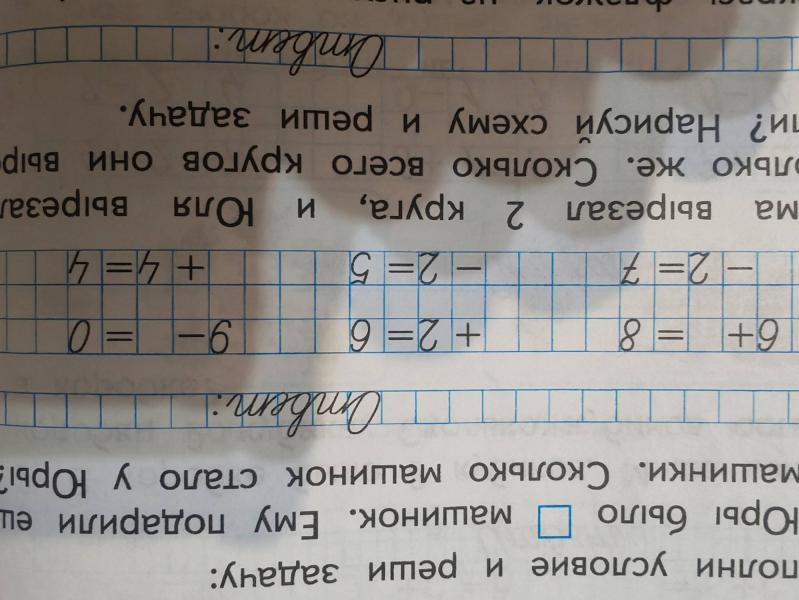 полни условие и реши задачу:
Юры было машинок. Ему подарили ещ
машинки. Сколько машинок стало у Юры?
Ответ:
6+ = 8 + 2= 6 9– = 0
– 2= 7 – 2= 5 + 4= 4
ма вырезал 2 круга, и Юля вырезал
олько же. Сколько всего кругов они выре
ли? Нарисуй схему и реши задачу.
Ответ:
флажок на